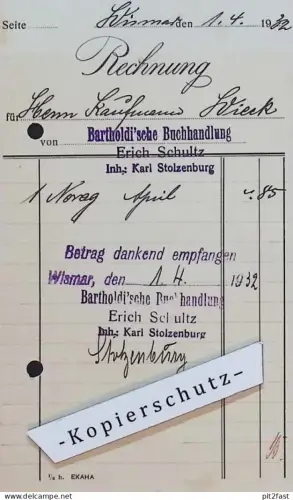 Seite Wismar den 1.4. 1932
Rechnung
für Herrn Kaufmann Wieck
von Bartholdi'sche Buchhandlung
Erich Schultz
Inh.: Karl Stolzenburg
1 Norag April -.85
Betrag dankend empfangen
Wismar, den 1.4. 1932
Bartholdi'sche Buchhandlung
Erich Schultz
Inh.: Karl Stolzenburg
Stolzenburg
-Kopierschutz-
¼ h. EKAHA
www.delcampe.net
pit2fast